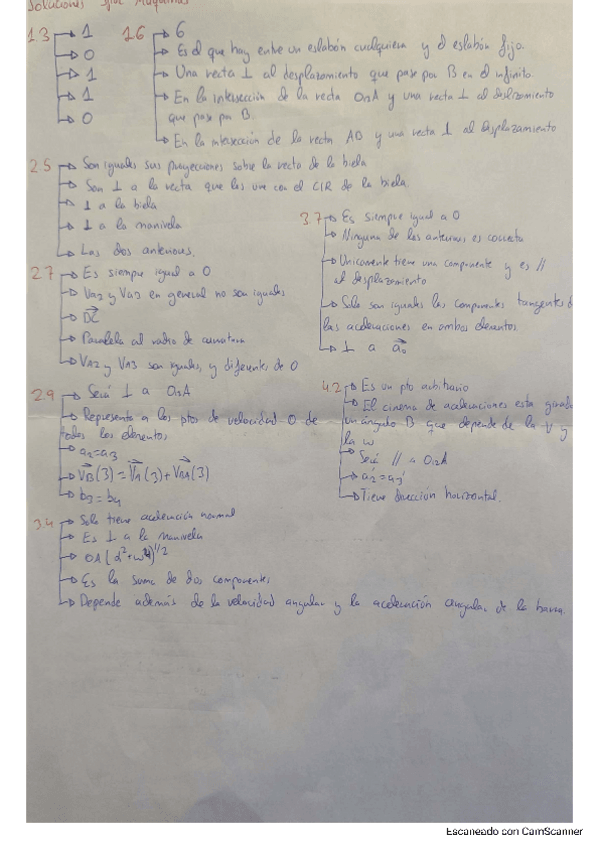 Soluciones Máquinas
1.3 → 1
→ 0
→ 1
→ 1
→ 0
1.6 → 6
→ Es el que hay entre un eslabón cualquiera y el eslabón fijo.
→ Una recta ⊥ al desplazamiento que pase por B en el infinito.
→ En la intersección de la recta O₂A y una recta ⊥ al deslizamiento
que pase por B.
→ En la intersección de la recta AB y una recta ⊥ al desplazamiento
2.5 → Son iguales sus proyecciones sobre la recta de la biela
→ Son ⊥ a la recta que los une con el CIR de la biela.
→ ⊥ a la biela
→ ⊥ a la manivela
→ Las dos anteriores.
3.7 → Es siempre igual a 0
→ Ninguna de las anteriores es correcta
→ Unicamente tiene una componente y es //
al desplazamiento
→ Solo son iguales las componentes tangentes de
las aceleraciones en ambos elementos.
→ ⊥ a a₀
2.7 → Es siempre igual a 0
→ VA2 y VA3 en general no son iguales
→ DC
→ Paralela al radio de curvatura
→ VA2 y VA3 son iguales, y diferentes de 0
2.9 → Será ⊥ a O₂A
→ Representa a los ptos de velocidad 0 de
todos los elementos
→ a₂=a₃
→ VB(3) = VA(3) + VBA(3)
→ b₃ = b₄
4.2 → Es un pto arbitrario
→ El cinema de aceleraciones esta girado
un ángulo B que depende de la V y
la w
→ Será // a O₂A
→ a₂'=a₃'
→ Tiene dirección horizontal.
3.4 → Solo tiene aceleración normal
→ Es ⊥ a la manivela
→ OA(α²+w⁴)^1/2
→ Es la suma de dos componentes
→ Depende además de la velocidad angular y la aceleración angular de la barra.
Escaneado con CamScanner